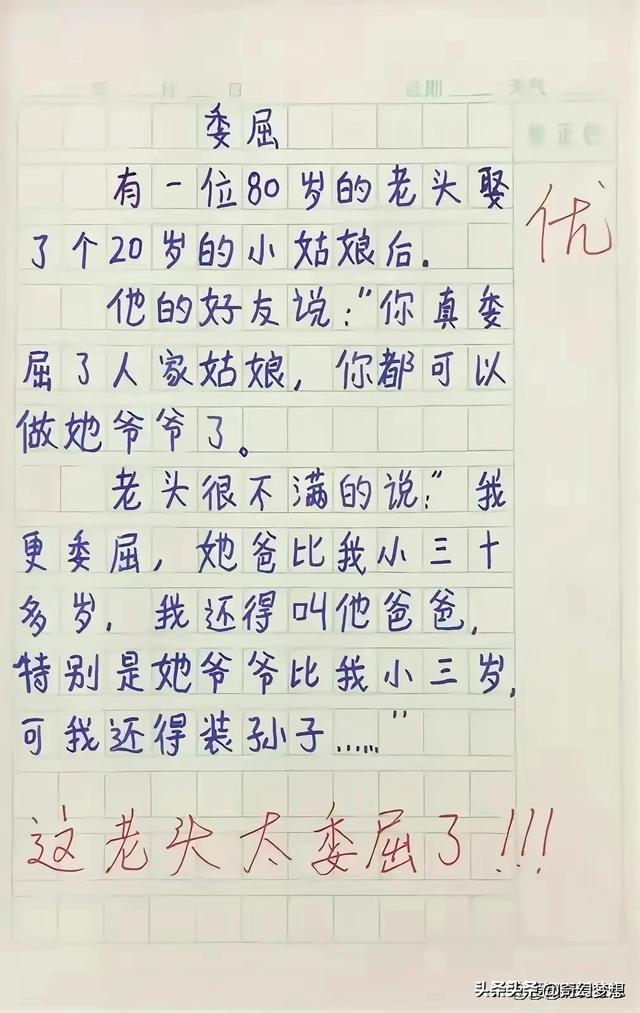 年 月 日 星期 天气
委屈
修正栏
有一位80岁的老头娶
了个20岁的小姑娘后.
优
他的好友说:“你真委
屈了人家姑娘,你都可以
做她爷爷了。
老头很不满的说:“我
更委屈,她爸比我小三十
多岁.我还得叫他爸爸,
特别是她爷爷比我小三岁,
可我还得装孙子……”
这老头太委屈了!!!
头条头条@奇幻梦想